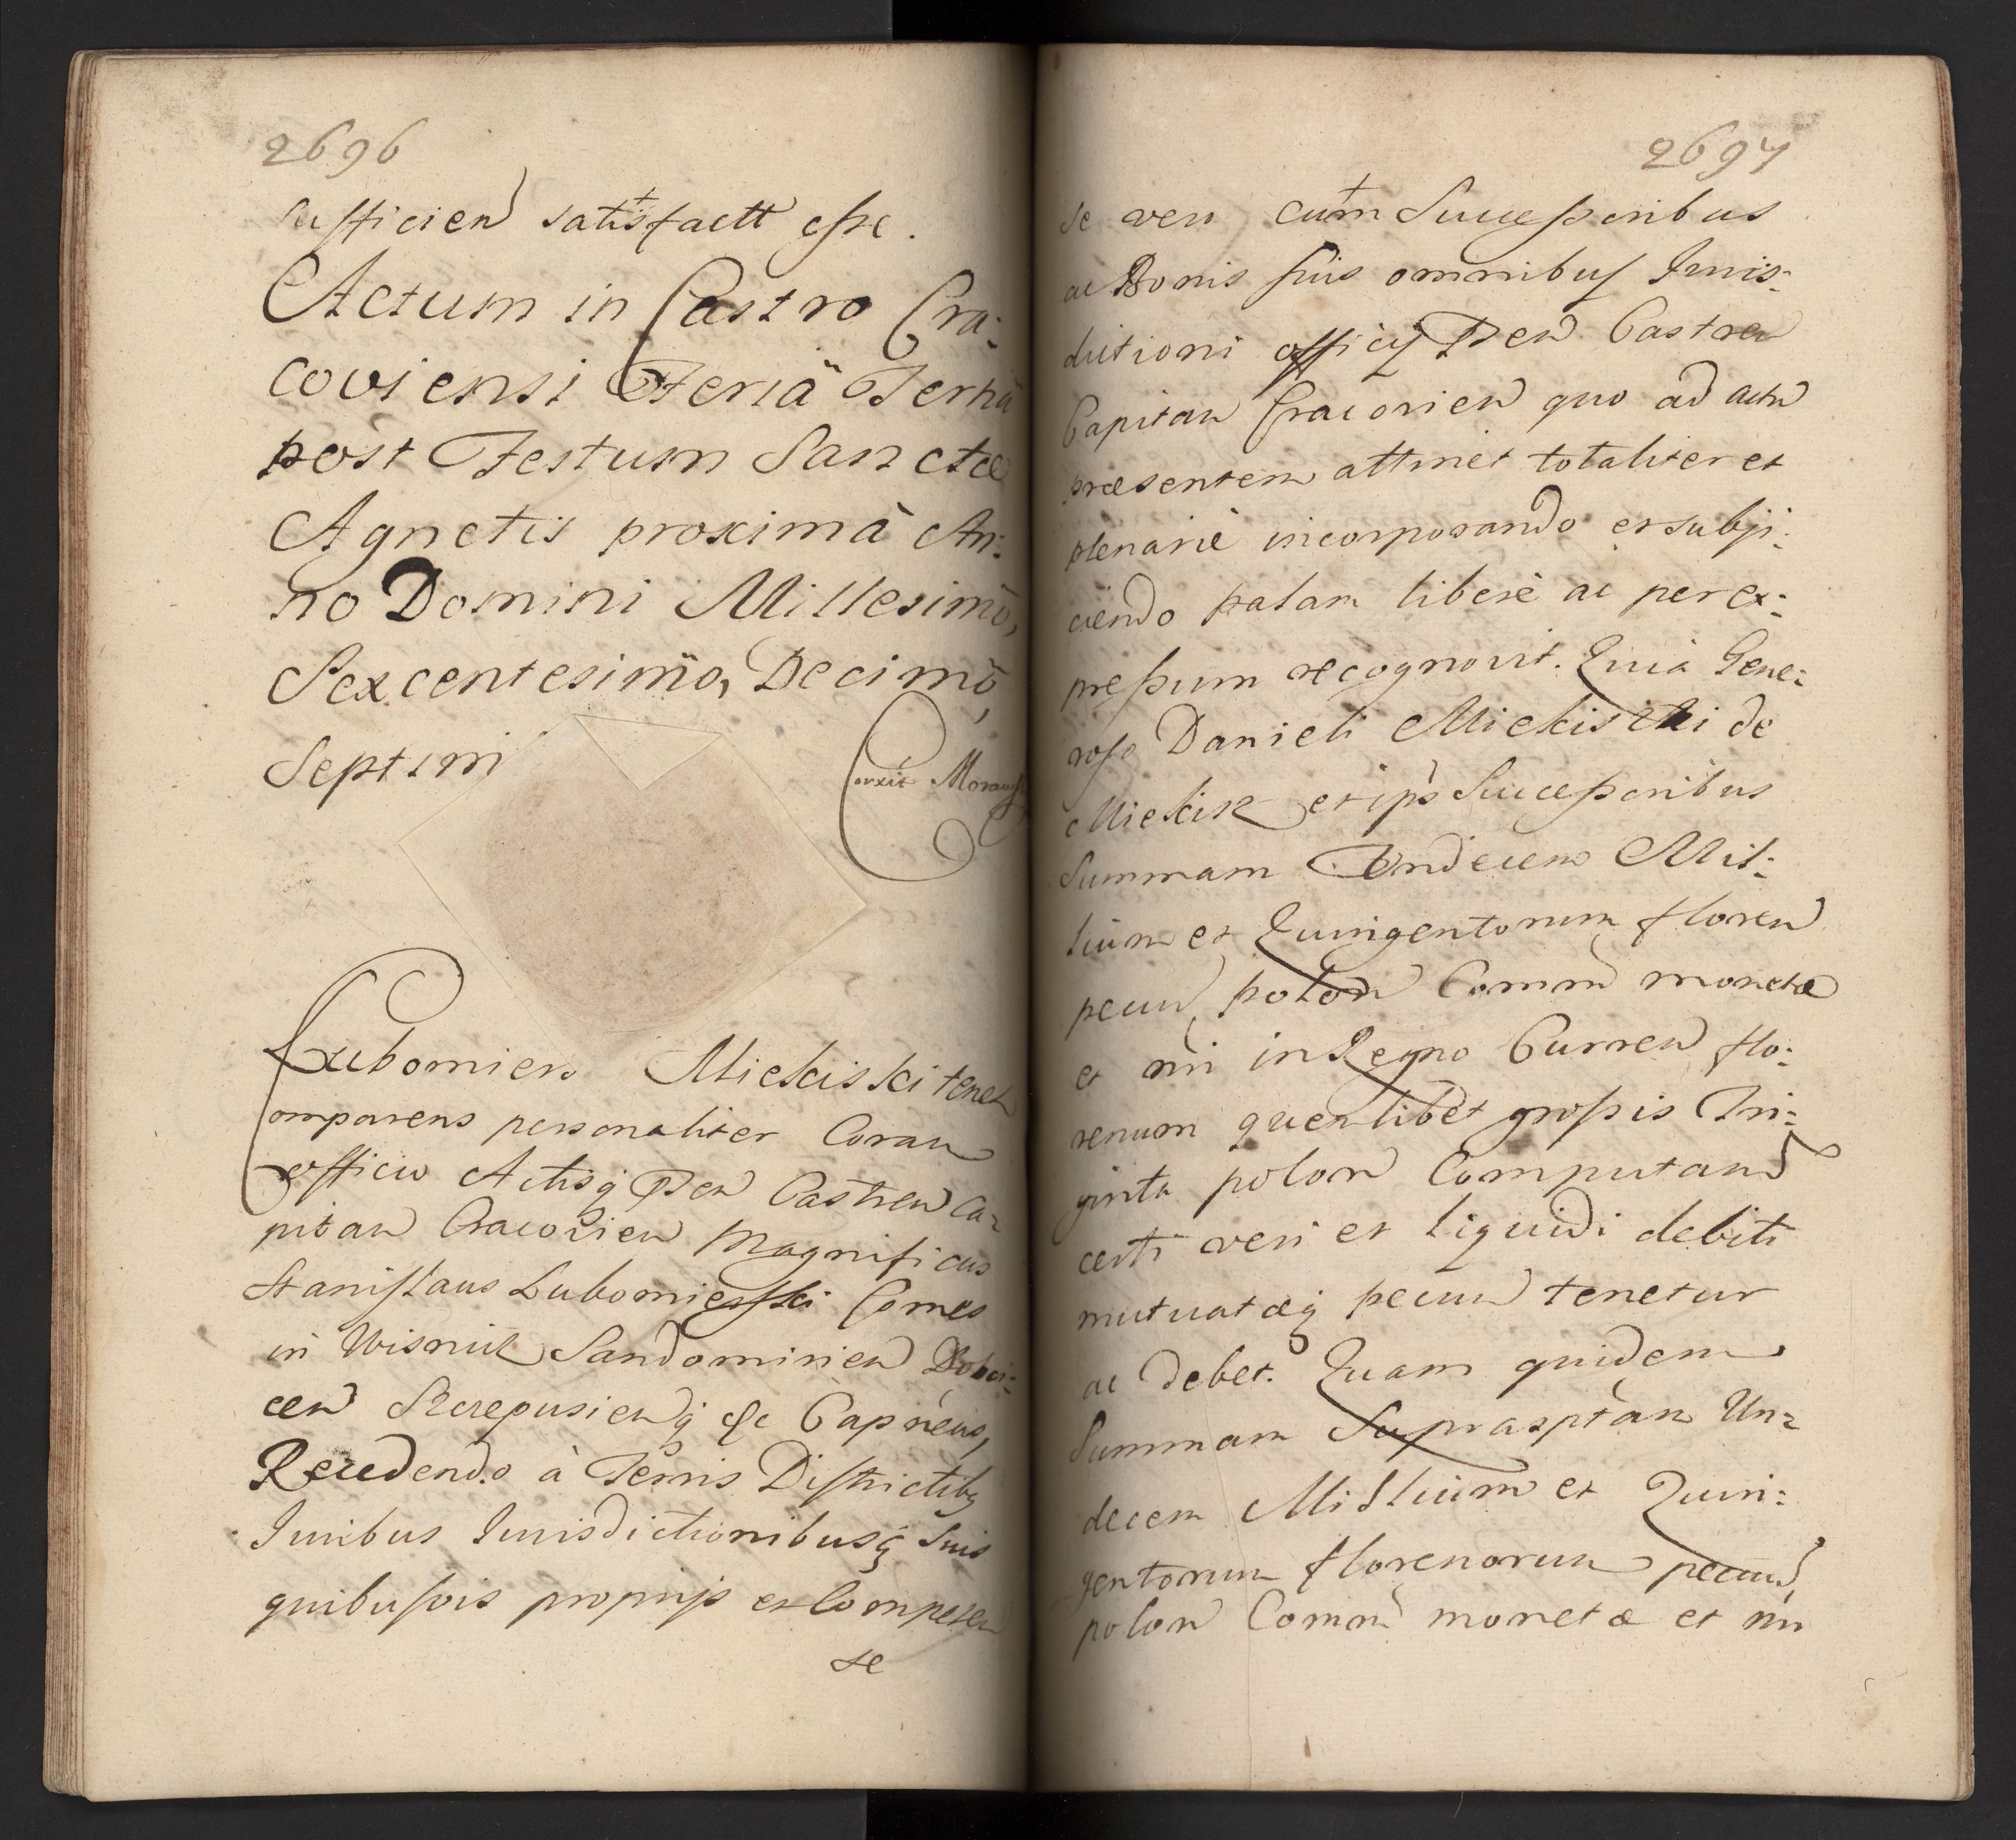 2696
sufficien satisfactt esse.
Actum in Castro Cra:
coviensi Feriâ Tertiâ
post Festum Sanctæ
Agnetis proximâ An:
no Domini Millesimô,
Sexcentesimô, Decimô,
Septimi
Corxit Morawski
Lubomiers Miekiski tenet
Comparens personaliter Coram
officio Actisq Pſen Castren Ca:
pitan Cracovien Magnificus
Stanislaus Lubomierski Comes
in Wisnicz Sandomirien Dobci:
cen Scepusienq &c Capneus,
Recedendo à Terris Districtibq
Iuribus Iurisdictionibusq suis
quibusvis proprijs et Competen
se
2697
se vero cum Successoribus
ac Bonis suis omnibus Iuris:
dictioni officij Pſen Castren
Capitan Cracovien quo ad actu
præsentem attinet totaliter et
plenariè incorporando et subji:
ciendo palam liberè ac per ex:
pressum recognovit. Quia Gene:
roso Danieli Miekiski de
Miekisz et ips Successoribus
Summam Undecem Mil:
lium et Quingentorum floren
pecun polon Comm monetæ
et nn in Regno Curren flo:
renum quemlibet grossis Tri:
ginta polon Computand
certi veri et liquidi debiti
mutuatæq pecun tenetur
ac debet. Quam quidem
Summam Suprasptam Un:
decem Millium et Quin:
gentorum florenorum pecun,
polon Comm monetæ et nn